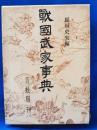 稲垣史生編
戦國武家事典
青蛙房刊